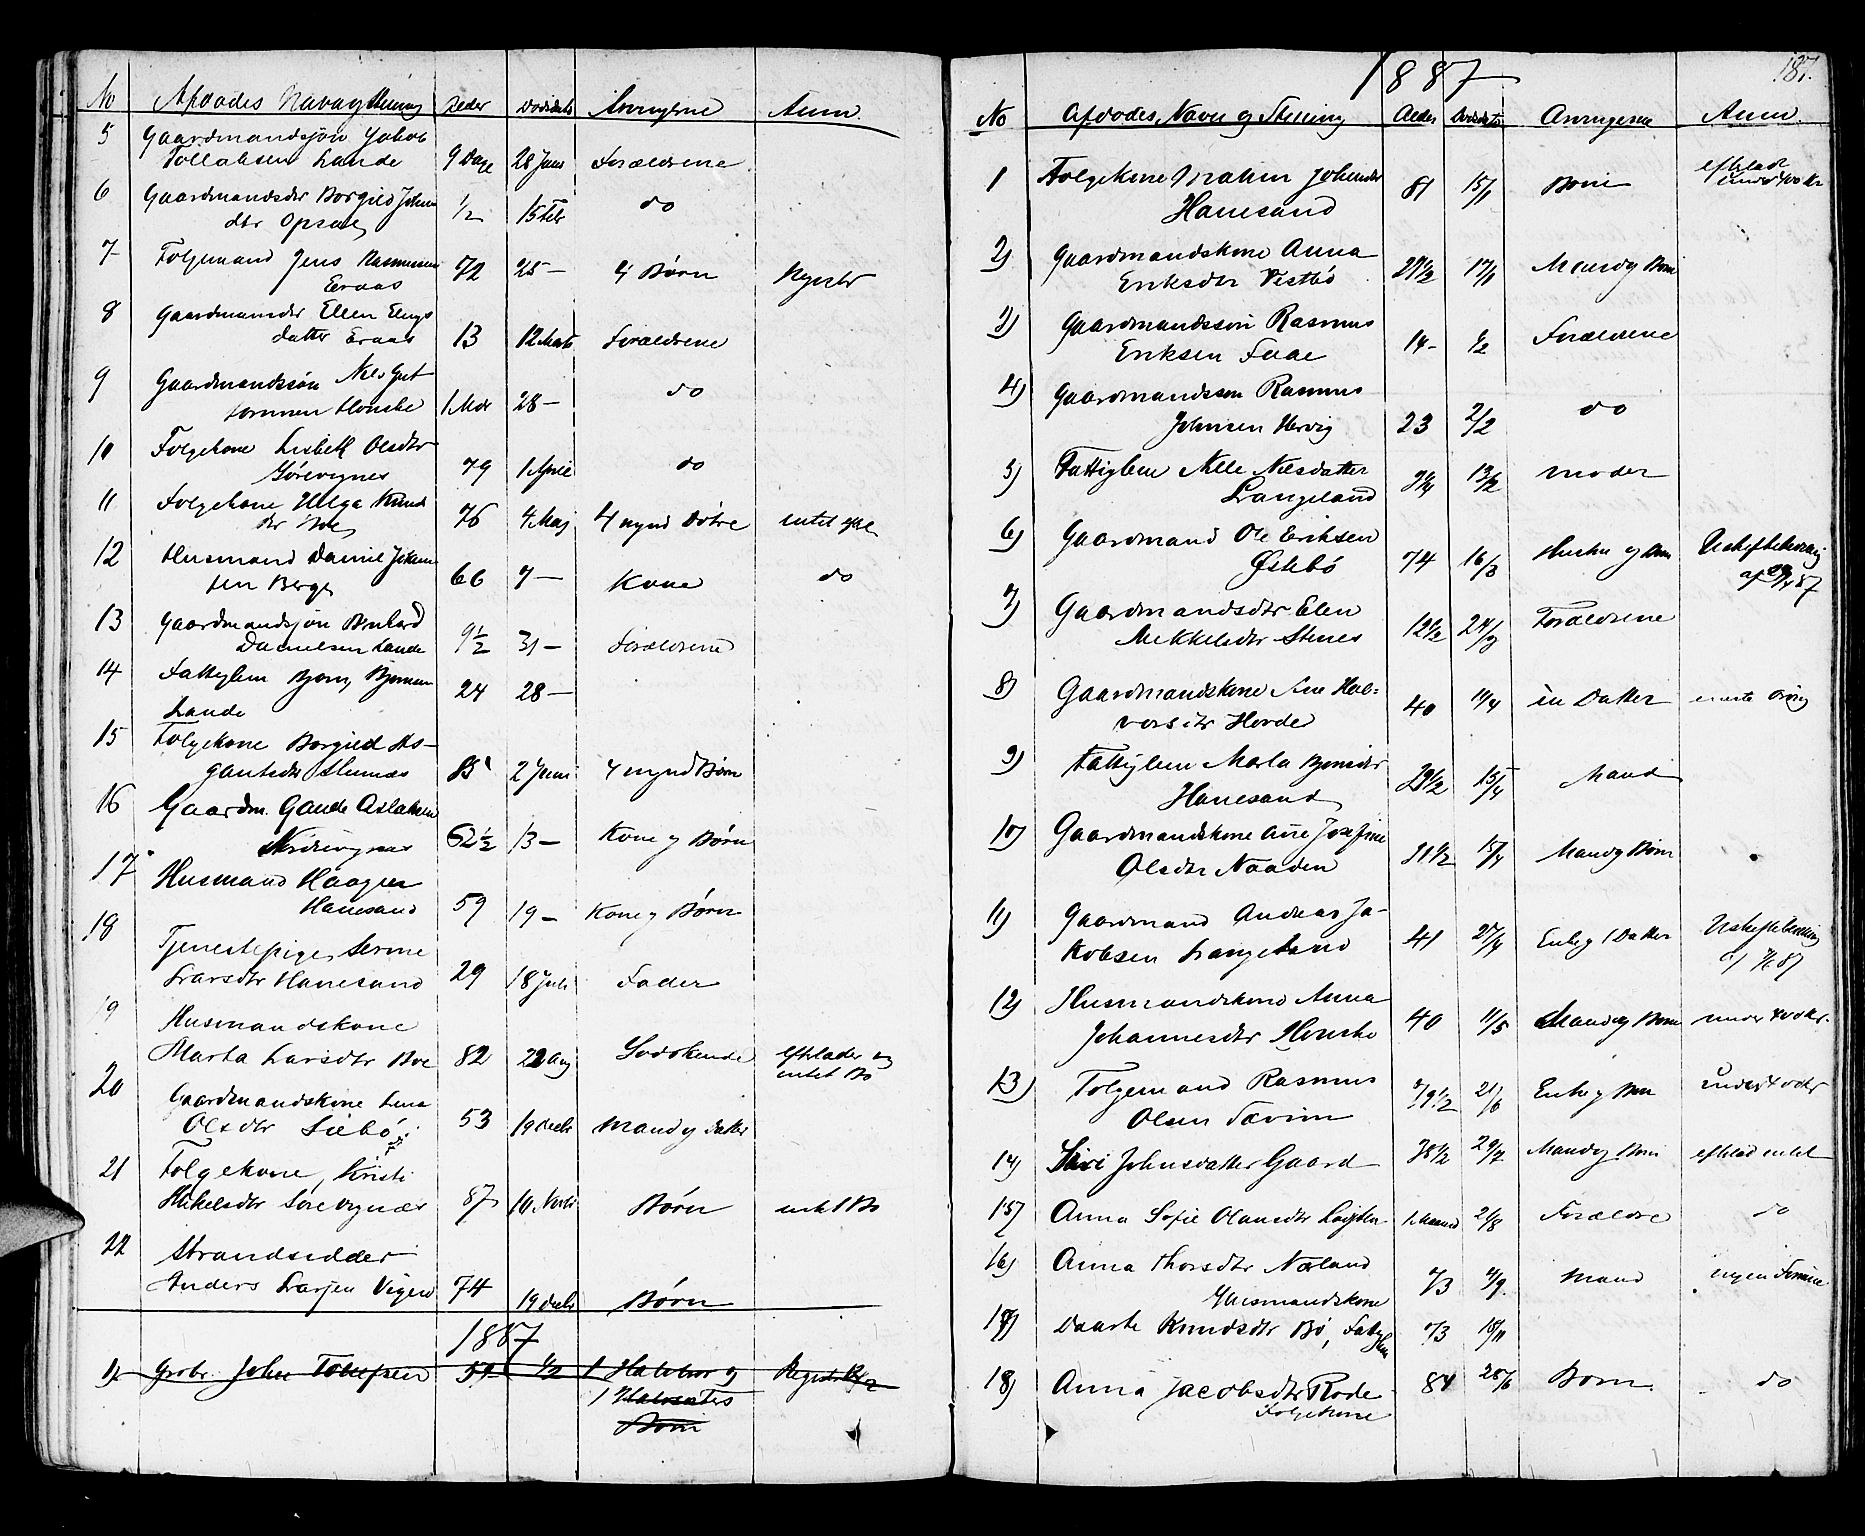 No Afdødes Navn og Stilling Alder Dødsdato Arvingerne Anm
5 Gaardmandssøn Jakob
Tollaksen Lande 9 Dage 28 Janr Forældrene
6 Gaardmandsdtr Borgild Johns
dtr Opsal ½ 15 Febr do
7 Folgemand Jens Rasmussen
Eraas 72 25 — 4 Børn Registr
8 Gaardmandsdtr Ellen Elings
datter Eraas 13 12 Marts Forældrene
9 Gaardmandssøn Nils Gut
tormsen Honske 1 Mdr 28 — do
10 Folgekone Lisbeth Olsdtr
Sörevognes 79 1 April do
11 Folgekone Helga Knuds
dtr Boe 76 4 Maj 4 mynd Døtre intet efl
12 Husmand Daniel Johan
sen Berge 66 7 — Kone do
13 Gaardmandssøn Bernhard
Danielsen Lande 9½ 31 — Forældrene
14 Fattiglem Bjorn Bjornsen 24 28 —
Lande
15 Folgekone Borgild As-
gautsdtr Stumnæs 85 2 Juni 4 mynd Børn
16 Gaardm. Gaude Aslaksen
62½ 13 — Kone og Børn
17 Husmand Haagen
Hanesand 59 19 — Kone og Børn
18 Tjenestepige Serine
Larsdtr Hanesand 29 18 Juli Fader
19 Husmandskone
Marta Larsdtr Boe 82 22 Aug Sødskende efterlader ig
intet Bo
20 Gaardmandskone Lena
Olsdtr Liebö 53 19 decbr Mand og datter
21 Folgekone Kristi
Mikelsdtr Sörevognes 87 10 Novbr Børn intet Bo
22 Strandsidder
Anders Larsen Vigen 74 19 decbr Børn
1887
1) Grbr. John Tollefsen 51 ½ 1 Halvbror og Registr
1 Halvsøsters
Børn
187.
1887
No Afdødes Navn og Stilling Alder Dødsdato Arvingerne Anm.
1 Folgekone Malien Johnsdtr 81 15/1 Børn efterlad
under 400 Kr
Hanesand
2) Gaardmandskone Anna
Eriksdtr Vestbö 29½ 17/1 Mand og Børn
3) Gaardmandssøn Rasmus
Eriksen Faae 14 ½ Forældrene
4) Gaardmandssøn Rasmus
Johnsen Hervig 23 2/2 do
5) Fattiglem Nille Nilsdatter
Langeland 13/2 moder
6) Gaardmand Ole Eriksen
Østebö 74 16/3 Hustru og Børn Uskiftebevilling
af 87
7) Gaardmandsdtr Elen
Mekkelsdtr Stenes 12½ 24/3 Forældrene
8) Gaardmandskone Ane Hal-
vorsdtr Horde 40 11/4 en Datter
9) Fattiglem Marta Bjornsdtr
Hanesand 15/4 Mand
10) Gaardmandskone Ane Josefine
Olsdtr Naaden 31½ 15/4 Mand og Børn
11) Gaardmand Andreas Ja-
kobsen Langeland 41 27/4 Enke og 1 Datter Uskiftebevilling
87
12) Husmandskone Anna
Johannesdtr Honske 40 11/5 Mand og Børn under 400 Kr.
13) Folgemand Rasmus
Olsen Tavim 79½ 21/6 Enke og Børn under 400 Kr
14) Siri Johnsdatter Gaard 38½ 29/7 Mand og Børn efterlod intet
15) Anna Sofie Olausdtr 1 Maaned 2/8 Forældre do
16) Anna Thorsdtr Nærland
Husmandskone 73 4/9 Mand ingen Formue
17) Daarte Knudsdtr Bö, Fattiglem 73 18/11
18) Anna Jacobsdtr Röde 84 28/6 Børn do
Folgekone